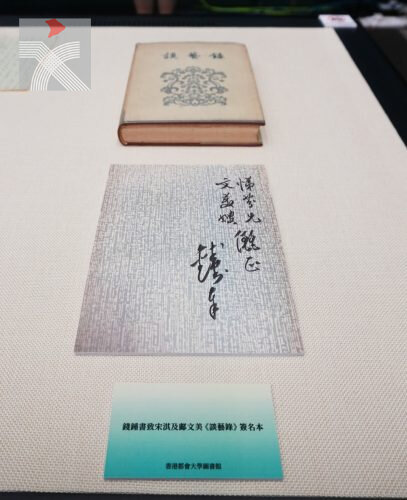 談藝錄
悌芬兄
文美嫂
儷正
錢鍾書致宋淇及鄺文美《談藝錄》簽名本
香港都會大學圖書館